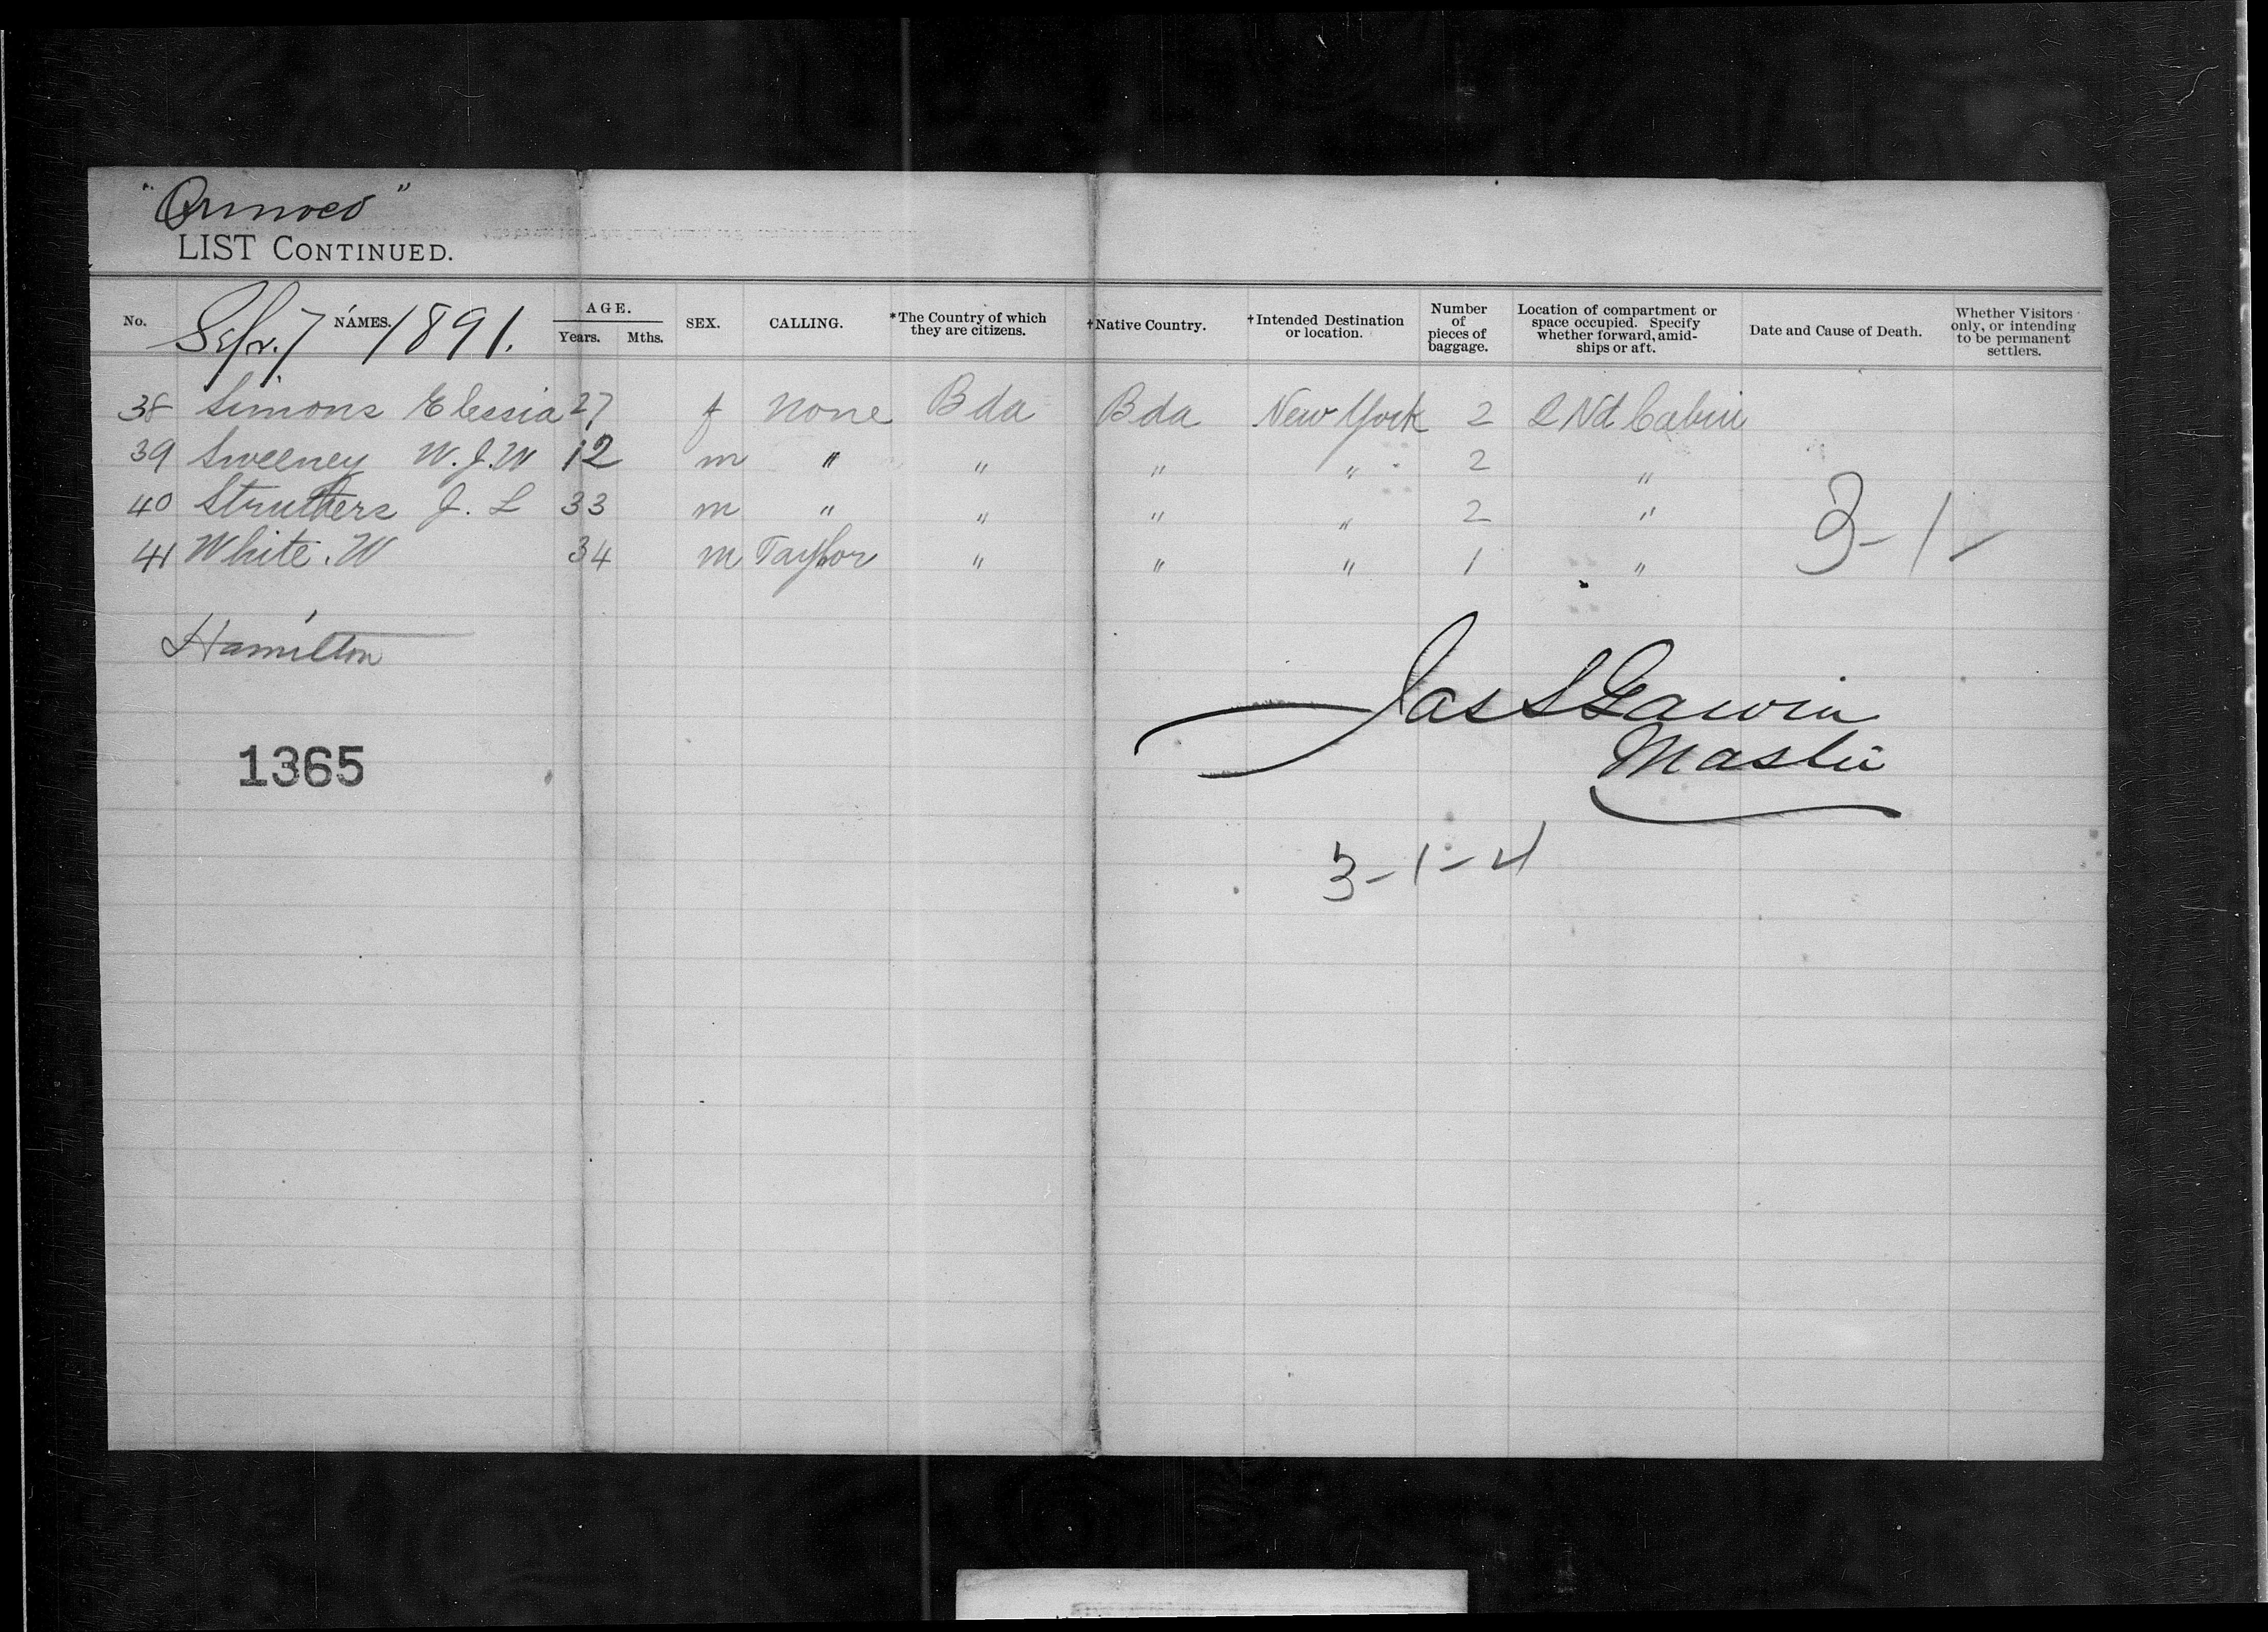 "Orinoco"
LIST CONTINUED.
No. NAMES. AGE. Years. Mths. SEX. CALLING. *The Country of which they are citizens. †Native Country. †Intended Destination or location. Number of pieces of baggage. Location of compartment or space occupied. Specify whether forward, amidships or aft. Date and Cause of Death. Whether Visitors only, or intending to be permanent settlers.
Sep. 7 1891.
38 Simons Elessia 27 f none Bda Bda New York 2 2Nd Cabin
39 Sweeney W. J. W 12 m " " " " 2 "
40 Struthers J. L 33 m " " " " 2 "
41 White. W 34 m Taylor " " " 1 "
3-1-
Hamilton
Jas
Master
1365
3-1-4